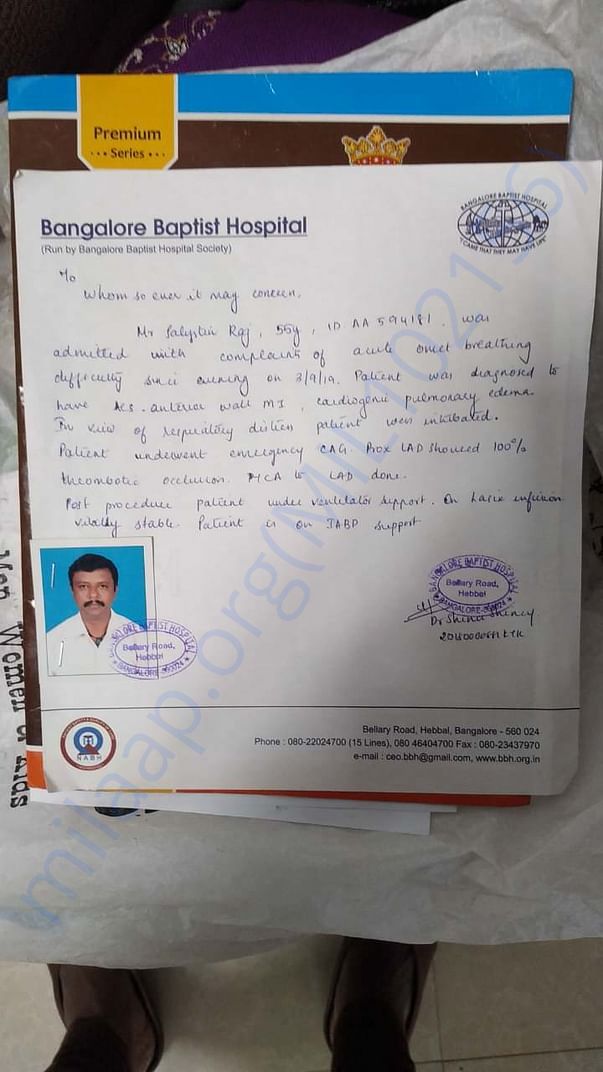 Premium
Series
Bangalore Baptist Hospital
(Run by Bangalore Baptist Hospital Society)
BANGALORE BAPTIST HOSPITAL
"CAME THAT THEY MAY HAVE LIFE"
To
Whom so ever it may concern,
Mr Raj, 55y, ID AA 594181, was
admitted with complaint of acute onset breathing
difficulty since evening on 3/9/19. Patient was diagnosed to
have ACS - anterior wall MI, cardiogenic pulmonary edema.
In view of respiratory distress patient was intubated.
Patient underwent emergency CAG. Prox LAD showed 100%
thrombotic occlusion. to LAD done.
Post procedure patient under ventilator support. On Lasix infusion
vitally stable. Patient is on IABP support
BANGALORE BAPTIST HOSPITAL
Bellary Road,
Hebbal
BANGALORE-560024
Dr
BANGALORE BAPTIST HOSPITAL
Bellary Road,
Hebbal
BANGALORE-560024
NABH
Bellary Road, Hebbal, Bangalore - 560 024
Phone : 080-22024700 (15 Lines), 080 46404700 Fax : 080-23437970
e-mail : ceo.bbh@gmail.com, www.bbh.org.in
Men Women & Kids
milaap.org(MIL1021